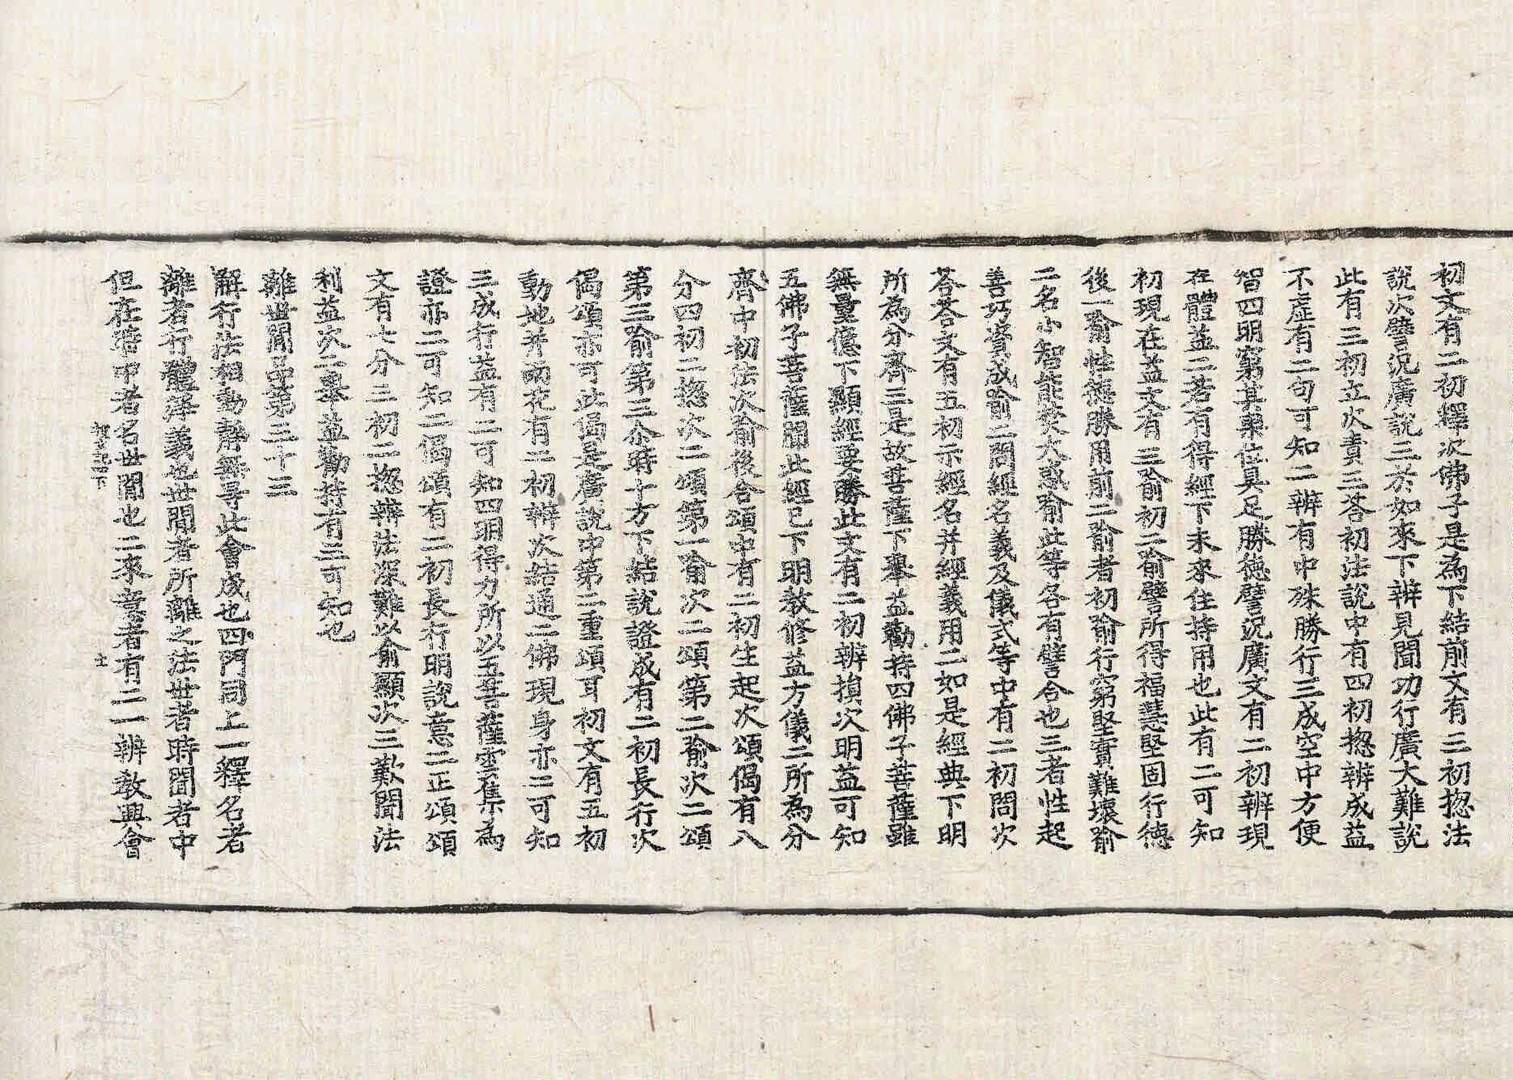 初文有二初釋次佛子是為下結前文有三初揔法
說次譬況廣說三於如來下辨見聞功行廣大難說
此有三初立次責三荅初法說中有四初揔辨成益
不虛有二句可知二辨有中殊勝行三成空中方便
智四明窮其樂位具足勝德譬況廣文有二初辨現
在體益二若有得經下未來住持用也此有二可知
初現在益文有三喻初二喻譬所得福慧堅固行德
後一喻性德勝用前二喻者初喻行窮堅實難壞喻
二名小智能焚大惑喻此等各有譬合也三者性起
善巧資成喻二問經名義及儀式等中有二初問次
荅荅文有五初示經名并經義用二如是經典下明
所為分齊三是故菩薩下舉益勸持四佛子菩薩雖
無量億下顯經要勝此文有二初辨損次明益可知
五佛子菩薩聞此經已下明教修益方儀二所為分
齊中初法次喻後合頌中有二初生起次頌偈有八
分四初二揔次二頌第一喻次二頌第二喻次二頌
第三喻第三尒時十方下結說證成有二初長行次
偈頌亦可此偈是廣說中第二重頌耳初文有五初
動地并雨花有二初辨次結通二佛現身亦二可知
三成行益有二可知四明得力所以五菩薩雲集為
證亦二可知二偈頌有二初長行明說意二正頌頌
文有七分三初二揔辨法深難以喻顯次三歎聞法
利益次二舉益勸持有三可知也
離世間品第三十三
解行法相動靜無㝵此會成也四門同上一釋名者
離者行體簿義也世間者所離之法世者時間者中
但在時中者名世間也二來意者有二一辨教興會